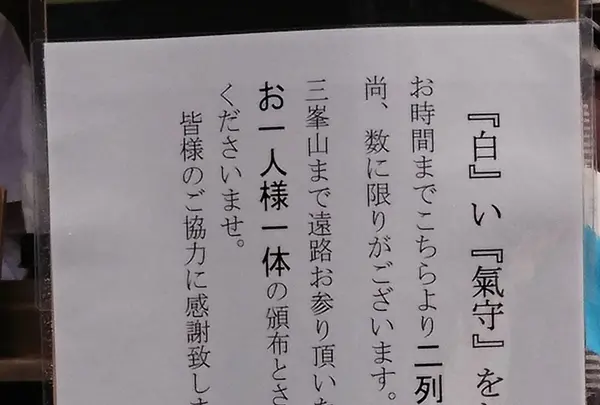 『白』い『氣守』を
お時間までこちらより二列
尚、数に限りがございます。
三峯山まで遠路お参り頂いた
お一人様一体の頒布とさ
くださいませ。
皆様のご協力に感謝致しま